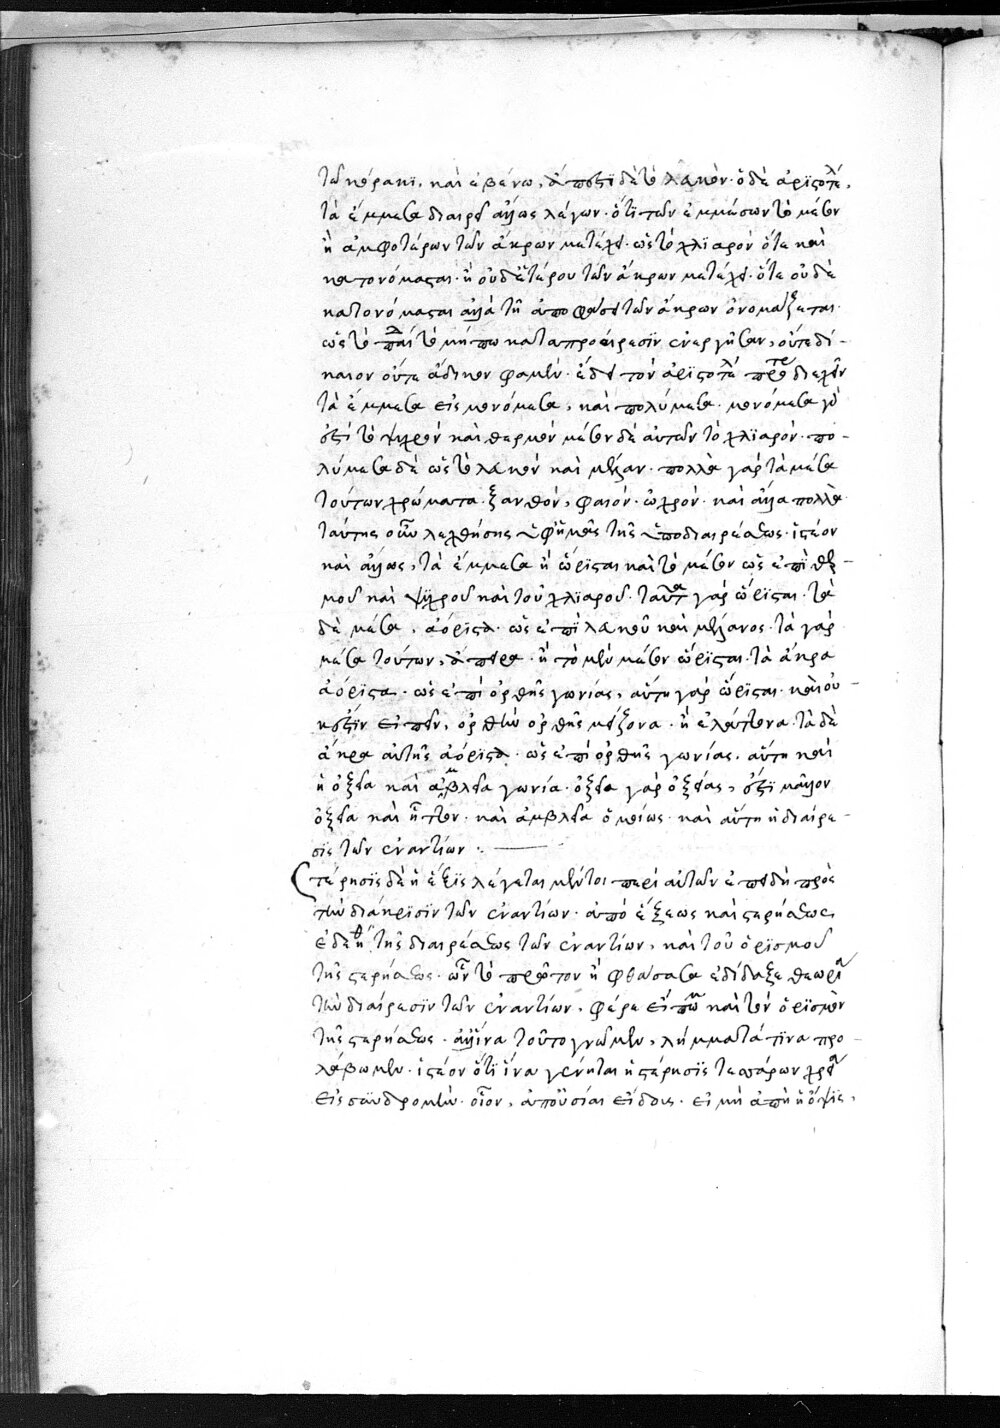 τῶ κόρακϊ, καὶ ἐβένω, ἄπεστϊ δὲ τὸ λευκόν· ὁ δὲ ἀρϊστοτέλ,
τὰ ἔμμεσα διαιρεῖ ἄλλως λέγων· ὅτϊ τῶν ἐμμέσων τὸ μέσον
ἢ ἀμφοτέρων τῶν ἄκρων μετέχει· ὡς τὸ χλϊαρὸν ὅτε καὶ
κατονόμασται· ἢ οὐδετέρου τῶν ἄκρων μετέχει· ὅτε οὐδὲ
κατονόμασται ἀλλὰ τῇ ἀποφάσει τῶν ἄκρων ὀνομάζεται·
ὡς τὸ παιδίον τὸ μήπω κατὰ προαίρεσϊν ἐνεργῆσαν, οὔτε δί-
καιον οὔτε ἄδικον φαμὲν· ἔδει τὸν ἀρϊστοτέλ πρότε διελεῖν
τὰ ἔμμεσα εἰς μονόμεσα, καὶ πολύμεσα· μονόμεσα γὰρ
ἐστὶ τὸ ψυχρὸν καὶ θερμὸν μέσον δὲ αὐτῶν τὸ χλϊαρόν· πο-
λύμεσα δὲ ὡς τὸ λευκὸν καὶ μέλαν· πολλὰ γὰρ τὰ μέσα
τούτων χρώματα· ξανθόν, φαιόν· ὠχρόν· καὶ ἄλλα πολλὰ
ταύτης οὖν λεχθείσης ἐφ' ἡμᾶς τῆς ὑποδιαιρέσεως· ἰστέον
καὶ ἄλλως, τὰ ἔμμεσα ἢ ὥρϊσται καὶ τὸ μέσον ὡς ἐπὶ θερ-
μοῦ καὶ ψυχροῦ καὶ τοῦ χλϊαροῦ· ταῦτα γὰρ ὥρϊσται· τὰ
δὲ μέσα, ἀόρϊστα· ὡς ἐπὶ λευκοῦ καὶ μέλανος· τὰ γὰρ
μέσα τούτων, ἄπειρα· ἢ τὸ μὲν μέσον ὥρϊσται· τὰ ἄκρα
ἀόρϊστα· ὡς ἐπὶ ὀρθῆς γωνίας, αὕτη γὰρ ὥρϊσται· καὶ οὐ
κ ἔστϊν εἰπεῖν, ὀρθὴν ὀρθῆς μείζονα· ἢ ἐλάττονα· τὰ δὲ
ἄκρα αὐτῆς ἀόρϊστα· ὡς ἐπὶ ὀρθῆς γωνίας· αὕτη καὶ
ἡ ὀξεῖα καὶ ἀμβλεῖα γωνία· ὀξεῖα γὰρ ὀξείας, ἐστὶ μᾶλλον
ὀξεῖα καὶ ἧττον· καὶ ἀμβλεῖα ὁμοίως· καὶ αὕτη ἡ διαίρε-
σϊς τῶν ἐναντίων :
Στέρησϊς δὲ ἡ ἕξϊς λέγεται μέντοι περὶ αὐτῶν ἐπειδὴ πρὸς
τὴν διάκρϊσϊν τῶν ἐναντίων· ἀπὸ ἕξεως καὶ στερήσεως,
ἐδεήθη τῆς διαιρέσεως τῶν ἐναντίων, καὶ τοῦ ὁρϊσμοῦ
τῆς στερήσεως· ὧν τὸ πρῶτον ἡ φθάσασα ἐδίδαξε θεωρία
τὴν διαίρεσϊν τῶν ἐναντίων, φέρε εἴπωμεν καὶ τὸν ὁρϊσμὸν
τῆς στερήσεως· ἀλλ' ἵνα τοῦτο γνῶμεν, λήμματά τϊνα προ-
λάβωμεν· ἰστέον ὅτϊ ἵνα γένηται ἡ στέρησϊς τεσσάρων χρεία
εἰς συνδρομήν· οἷον, ἀπουσίαι εἴδους· εἰ μὴ ἀπῇ ἡ ὄψϊς,